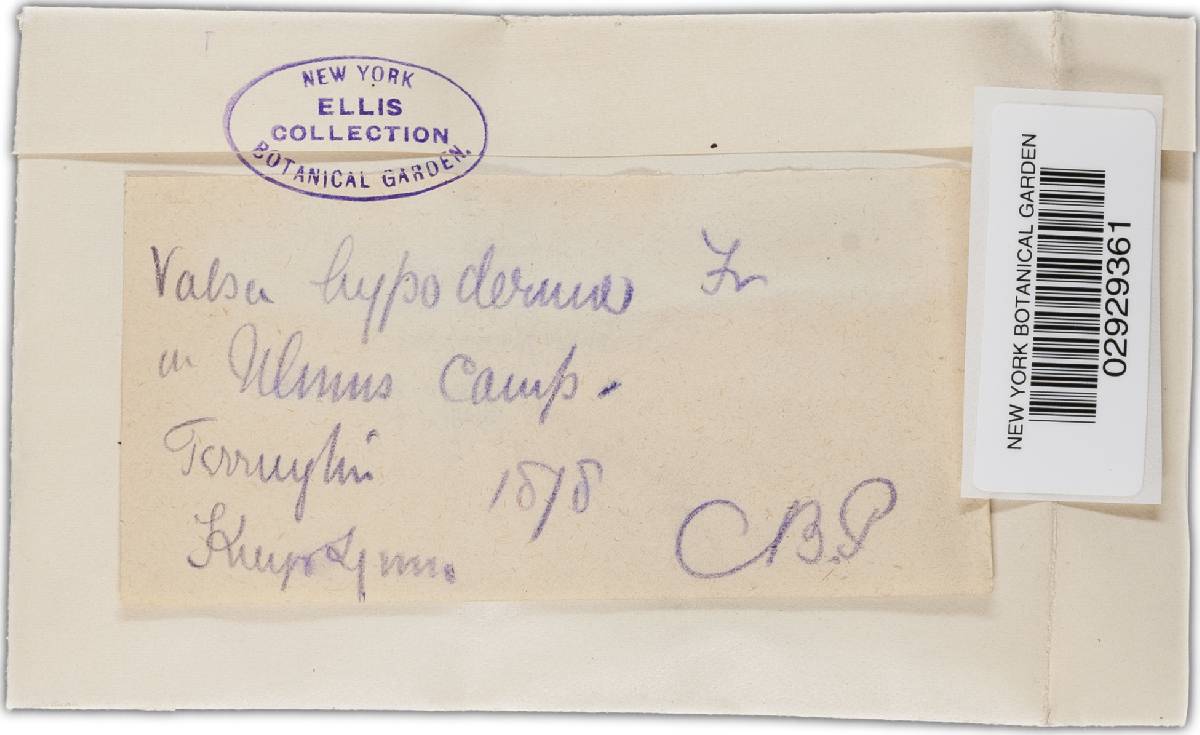 NEW YORK
ELLIS
COLLECTION
BOTANICAL GARDEN.
Valsa hypodermia Fr
in Ulmus Camp.
1878
C B. P
NEW YORK BOTANICAL GARDEN
02929361